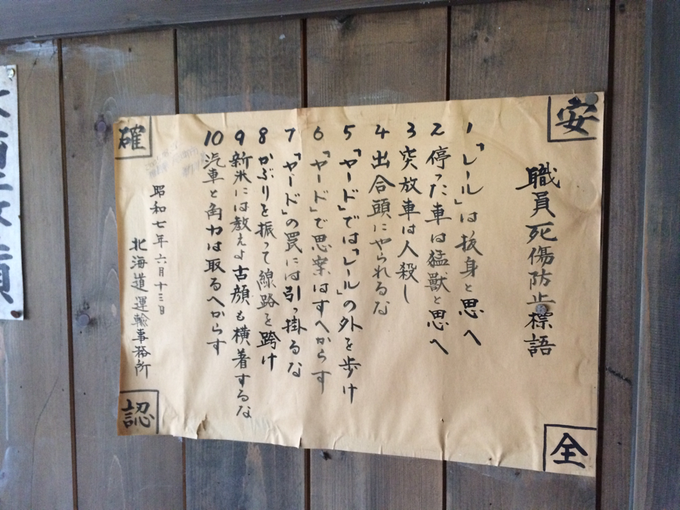 安
全
職員死傷防止標語
1「レール」は抜身と思へ
2 停った車は猛獣と思へ
3 突放車は人殺し
4 出合頭にやられるな
5「ヤード」では「レール」の外を歩け
6「ヤード」で思案はすへからす
7「ヤード」の罠には引っ掛るな
8 かぶりを振って線路を跨け
9 新米には教えよ古顔も横着するな
10 汽車と角力は取るへからす
昭和七年六月十三日
北海道運輸事務所
確
認